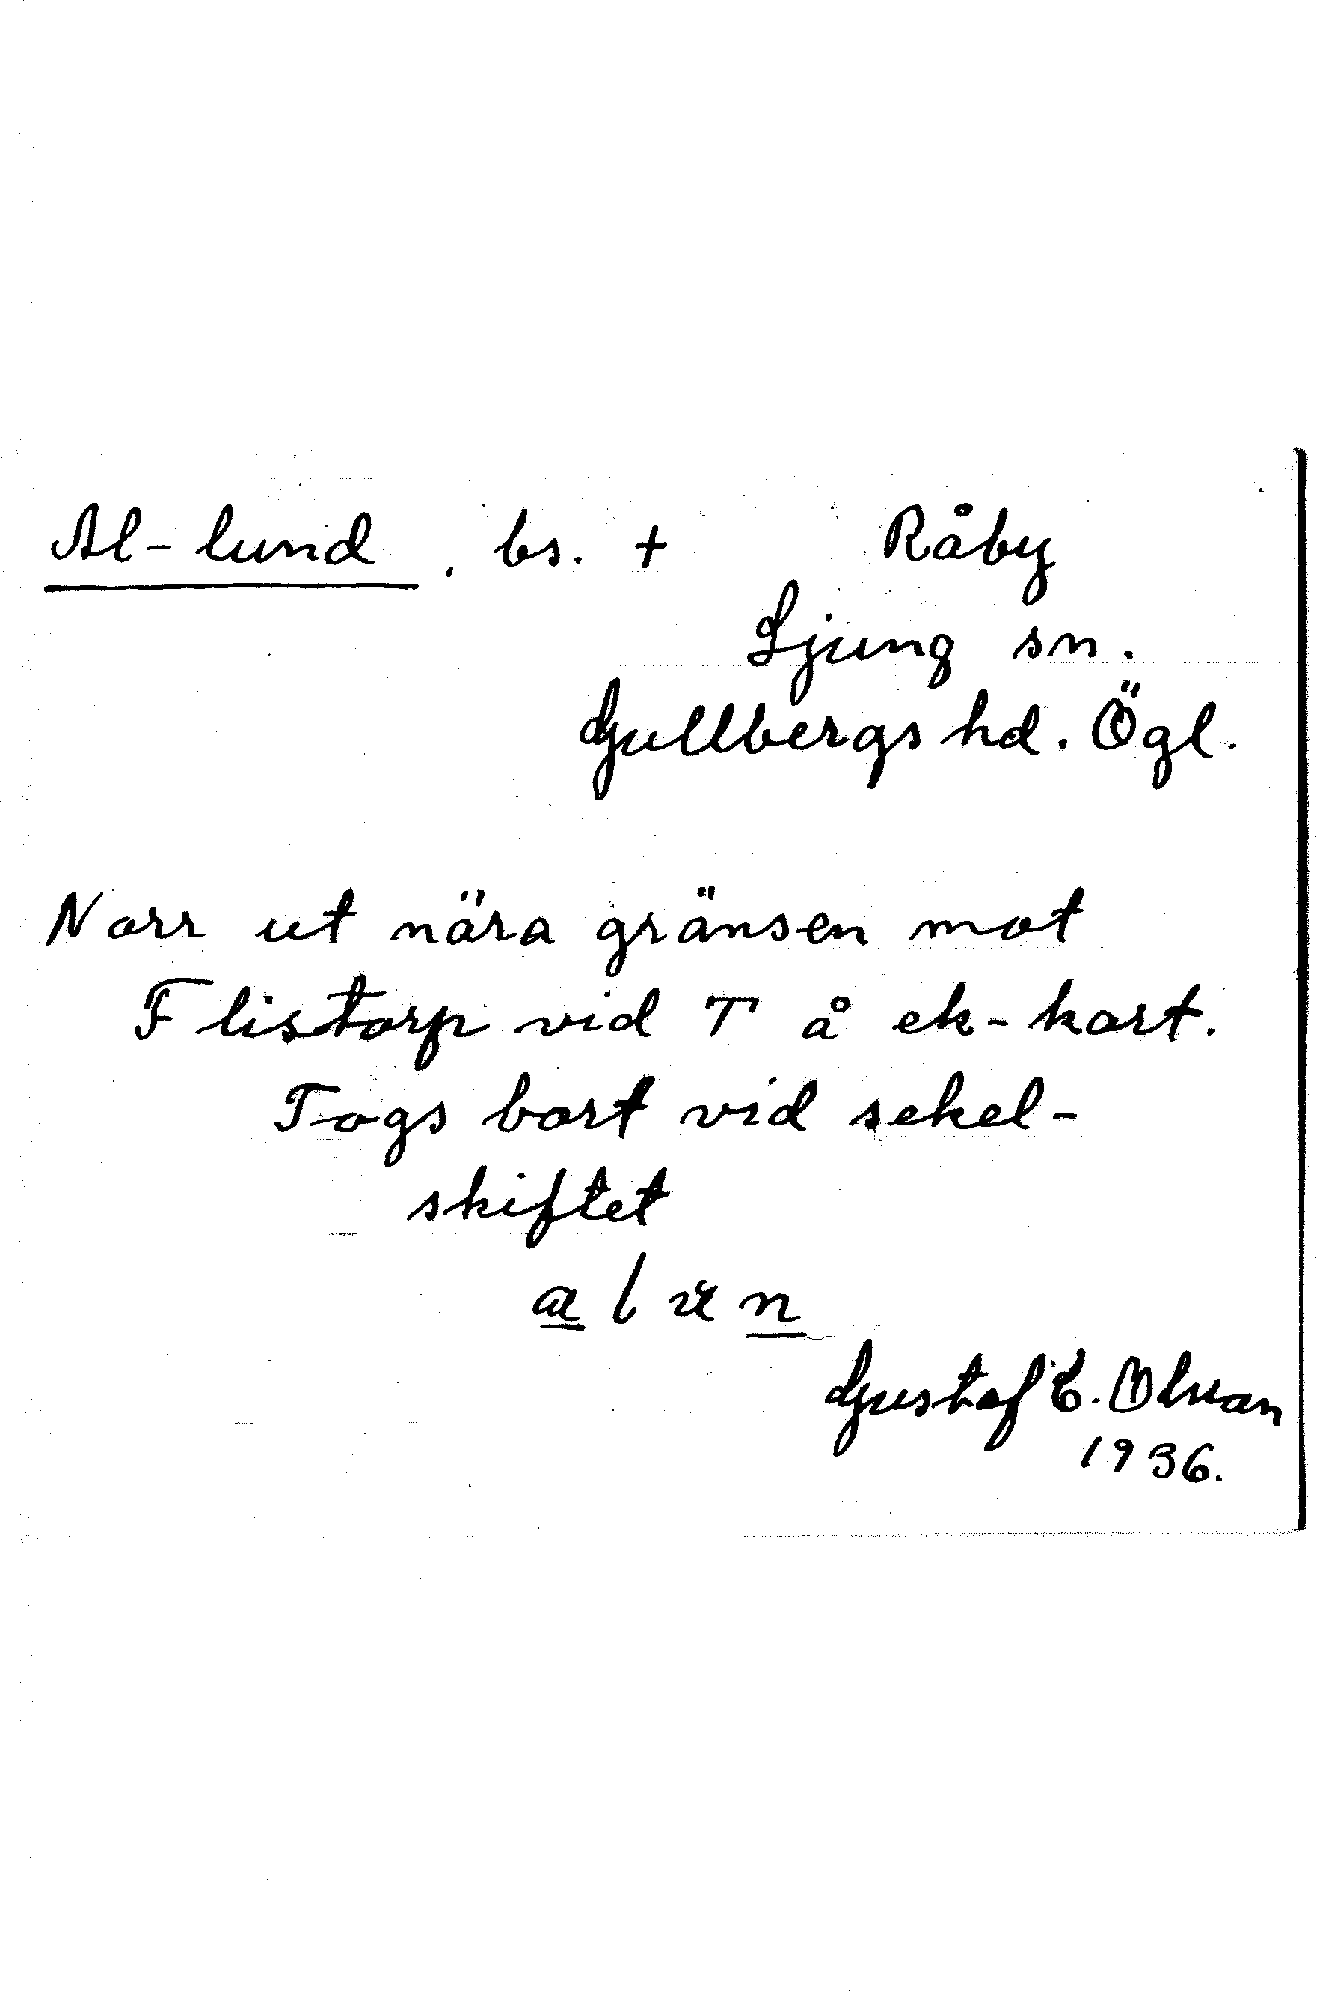 Al-lund. bs. + Råby
Ljung sn.
Gullbergs hd. Ögl.
Norr ut nära gränsen mot
Flistorp vid T å ek-kart.
Togs bort vid sekel-
skiftet
Gustaf E. Olsson
1936.